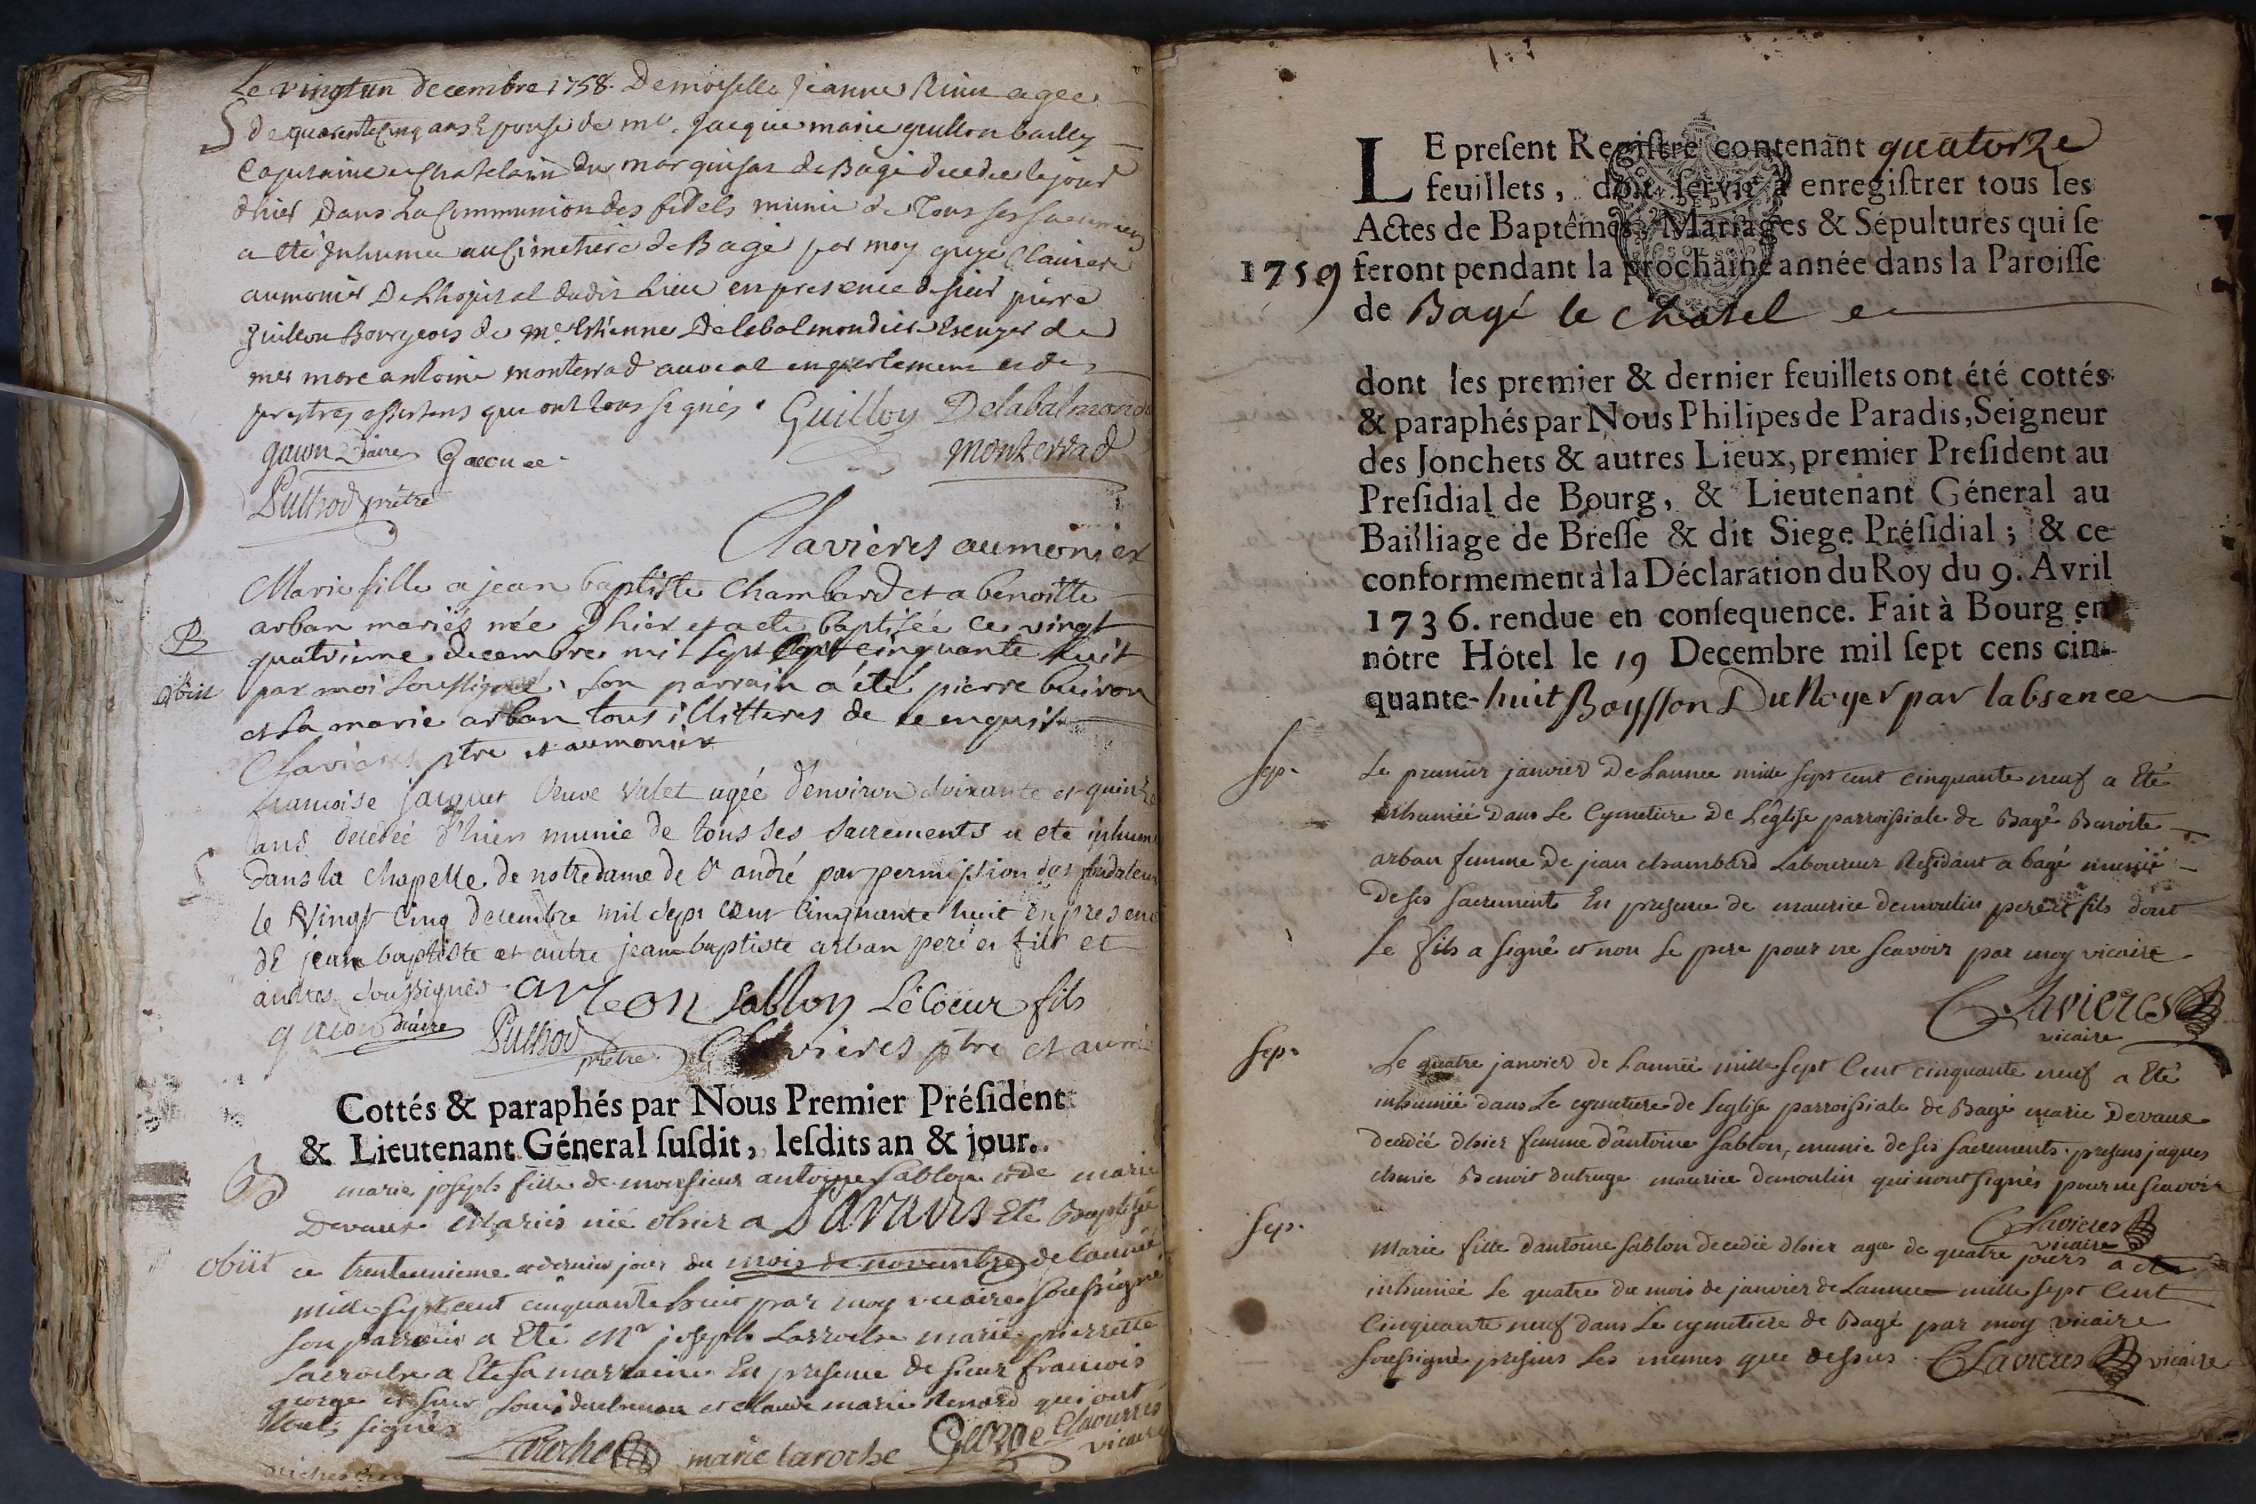 Le vingt un decembre 1758. Demoiselle jeanne agee
S de quarente Cinq ans Epouse de mr. jacque marie guillon bailly
Capitaine et Chatelain du marquisat de Bagé decedee le jour
d'hier Dans La Communion des fidels munie de Tous ses sacremens
a été Inhumee au Cimetiere de Bagé par moy Claviere
aumonier De Lhopital dudit Lieu en presence de sieur pierre
guillon Bourgeois de me. Estienne Delabalmondiere Escuyer de
mer marc antoine monterrad avocat en parlement et de
prestres assistens qui ont tous signés. Guillon Delabalmondi
gacon Diaire Gacon monterrad
Puthod prêtre
Clavieres aumonier
Marie fille a jean baptiste Chambard et a benoitte
arban mariés née d'hier et a eté baptisée ce vingt
B
quatrieme decembre mil sept cent cinquante huit
obiit par moi soussigné. son parrain a été pierre buiron
et la marie arban tous illitteres de ce enquis
Clavieres ptre et aumonier
francoise jacquet Veuve Valet agée d'environ soixante et quinze
S ans decedée d'hier munie de tous ses sacrements a ete inhumé
dans la chapelle de notre dame de St andré par permission des fondateurs
le Vingt Cinq decembre mil sept cent Cinquante huit en presence
de jean baptiste et autre jean baptiste arban pere et fils et
autres soussignés. arban Sablon Lécoeur fils
gacon Diaire Puthod prêtre Clavieres ptre et aumo
Cottés & paraphés par Nous Premier Préſident
& Lieutenant Géneral ſuſdit, leſdits an & jour.
B marie joseph fille de monsieur antoine Sablon et de marie
Devaux Mariés née d'hier a Eté Baptisée
obiit ce trenteunieme et dernier jour du mois de novembre de l'année
mille sept cent cinquante huit par moy vicaire soussigné
son parrain a Eté Mr joseph Larroche marie pierrette
Larroche a Eté sa marraine En presence de sieur francois
george et sieur Louis et claude marie Renard qui ont
tous signés
Laroche marie laroche George Clavieres
vicaire
LE preſent Regiſtre contenant quatorze
feuillets, doit ſervir à enregiſtrer tous les
Actes de Baptêmes, Mariages & Sépultures qui ſe
1759 feront pendant la prochaine année dans la Paroiſſe
de Bagé le Chatel
dont les premier & dernier feuillets ont été cottés
& paraphés par Nous Philipes de Paradis, Seigneur
des Jonchets & autres Lieux, premier Preſident au
Preſidial de Bourg, & Lieutenant Géneral au
Bailliage de Breſſe & dit Siege Préſidial ; & ce
conformement à la Déclaration du Roy du 9. Avril
1736. rendue en conſequence. Fait à Bourg en
nôtre Hôtel le 19 Decembre mil ſept cens cin-
quante-huit Boysson DuNoyer par labsence
Sep. Le premier janvier De Lannee mille sept cent cinquante neuf a Eté
inhumée Dans Le Cymetiere De L'eglise parroissiale de Bagé Benoite
arban femme De jean chambard Laboureur Residant a bagé munie
De ses sacrements En presence de maurice demoulin pere et fils dont
Le fils a signé et non Le pere pour ne scavoir par moy vicaire
Clavieres
vicaire
Sep. Le quatre janvier de Lannée mille sept Cent cinquante neuf a Eté
inhumée dans Le cymetiere de Leglise parroissiale de Bagé marie Devaux
decedée d'hier femme d'antoine Sablon, munie de ses sacrements. presens jaques
Benoit dutruge maurice demoulin qui n'ont signés pour ne scavoir
Clavieres
vicaire
Sep. Marie fille d'antoine Sablon decedée d'hier agee de quatre jours a eté
inhumée Le quatre du mois de janvier de Lannee mille sept Cent
Cinquante neuf dans Le cymetiere de Bagé par moy vicaire
soussigné presens Les memes que dessus. Clavieres vicaire